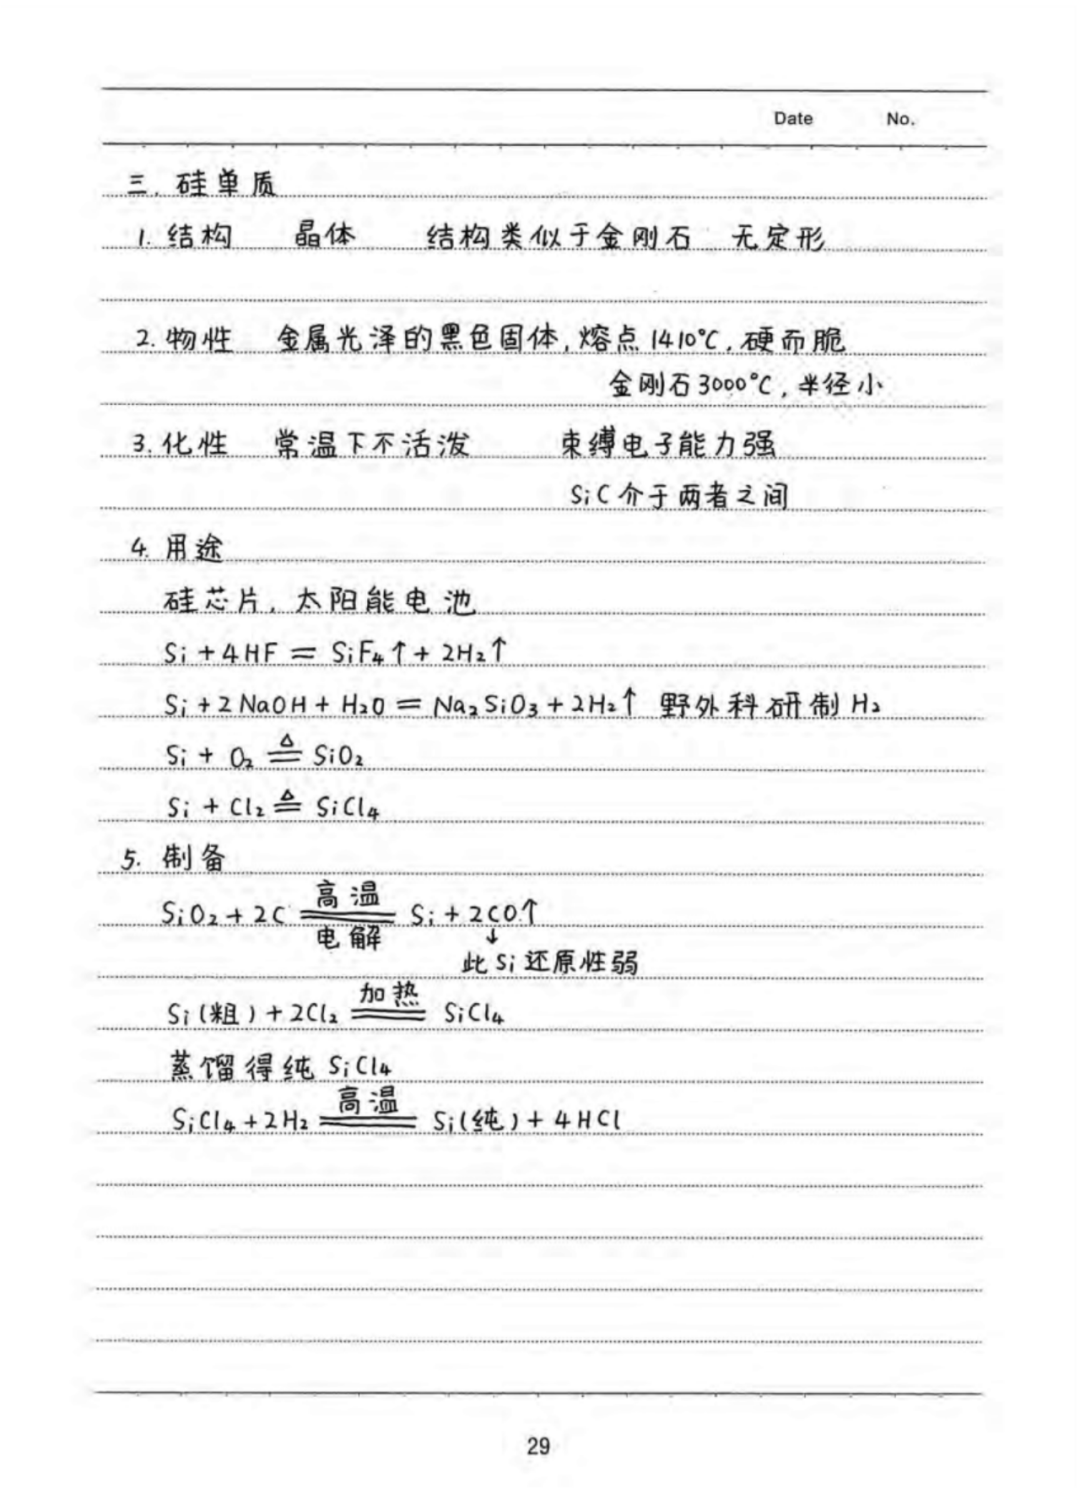 Date No.
三. 硅单质
1. 结构 晶体 结构类似于金刚石 无定形
2. 物性 金属光泽的黑色固体,熔点1410°C,硬而脆
金刚石3000°C,半径小
3. 化性 常温下不活泼 束缚电子能力强
SiC介于两者之间
4. 用途
硅芯片,太阳能电池
Si + 4HF = SiF₄↑ + 2H₂↑
Si + 2NaOH + H₂O = Na₂SiO₃ + 2H₂↑ 野外科研制H₂
Si + O₂ ≜ SiO₂
Si + Cl₂ ≜ SiCl₄
5. 制备
高温
SiO₂ + 2C ═ Si + 2CO↑
电解 ↓
此Si还原性弱
加热
Si(粗) + 2Cl₂ ═ SiCl₄
蒸馏得纯SiCl₄
高温
SiCl₄ + 2H₂ ═ Si(纯) + 4HCl
29